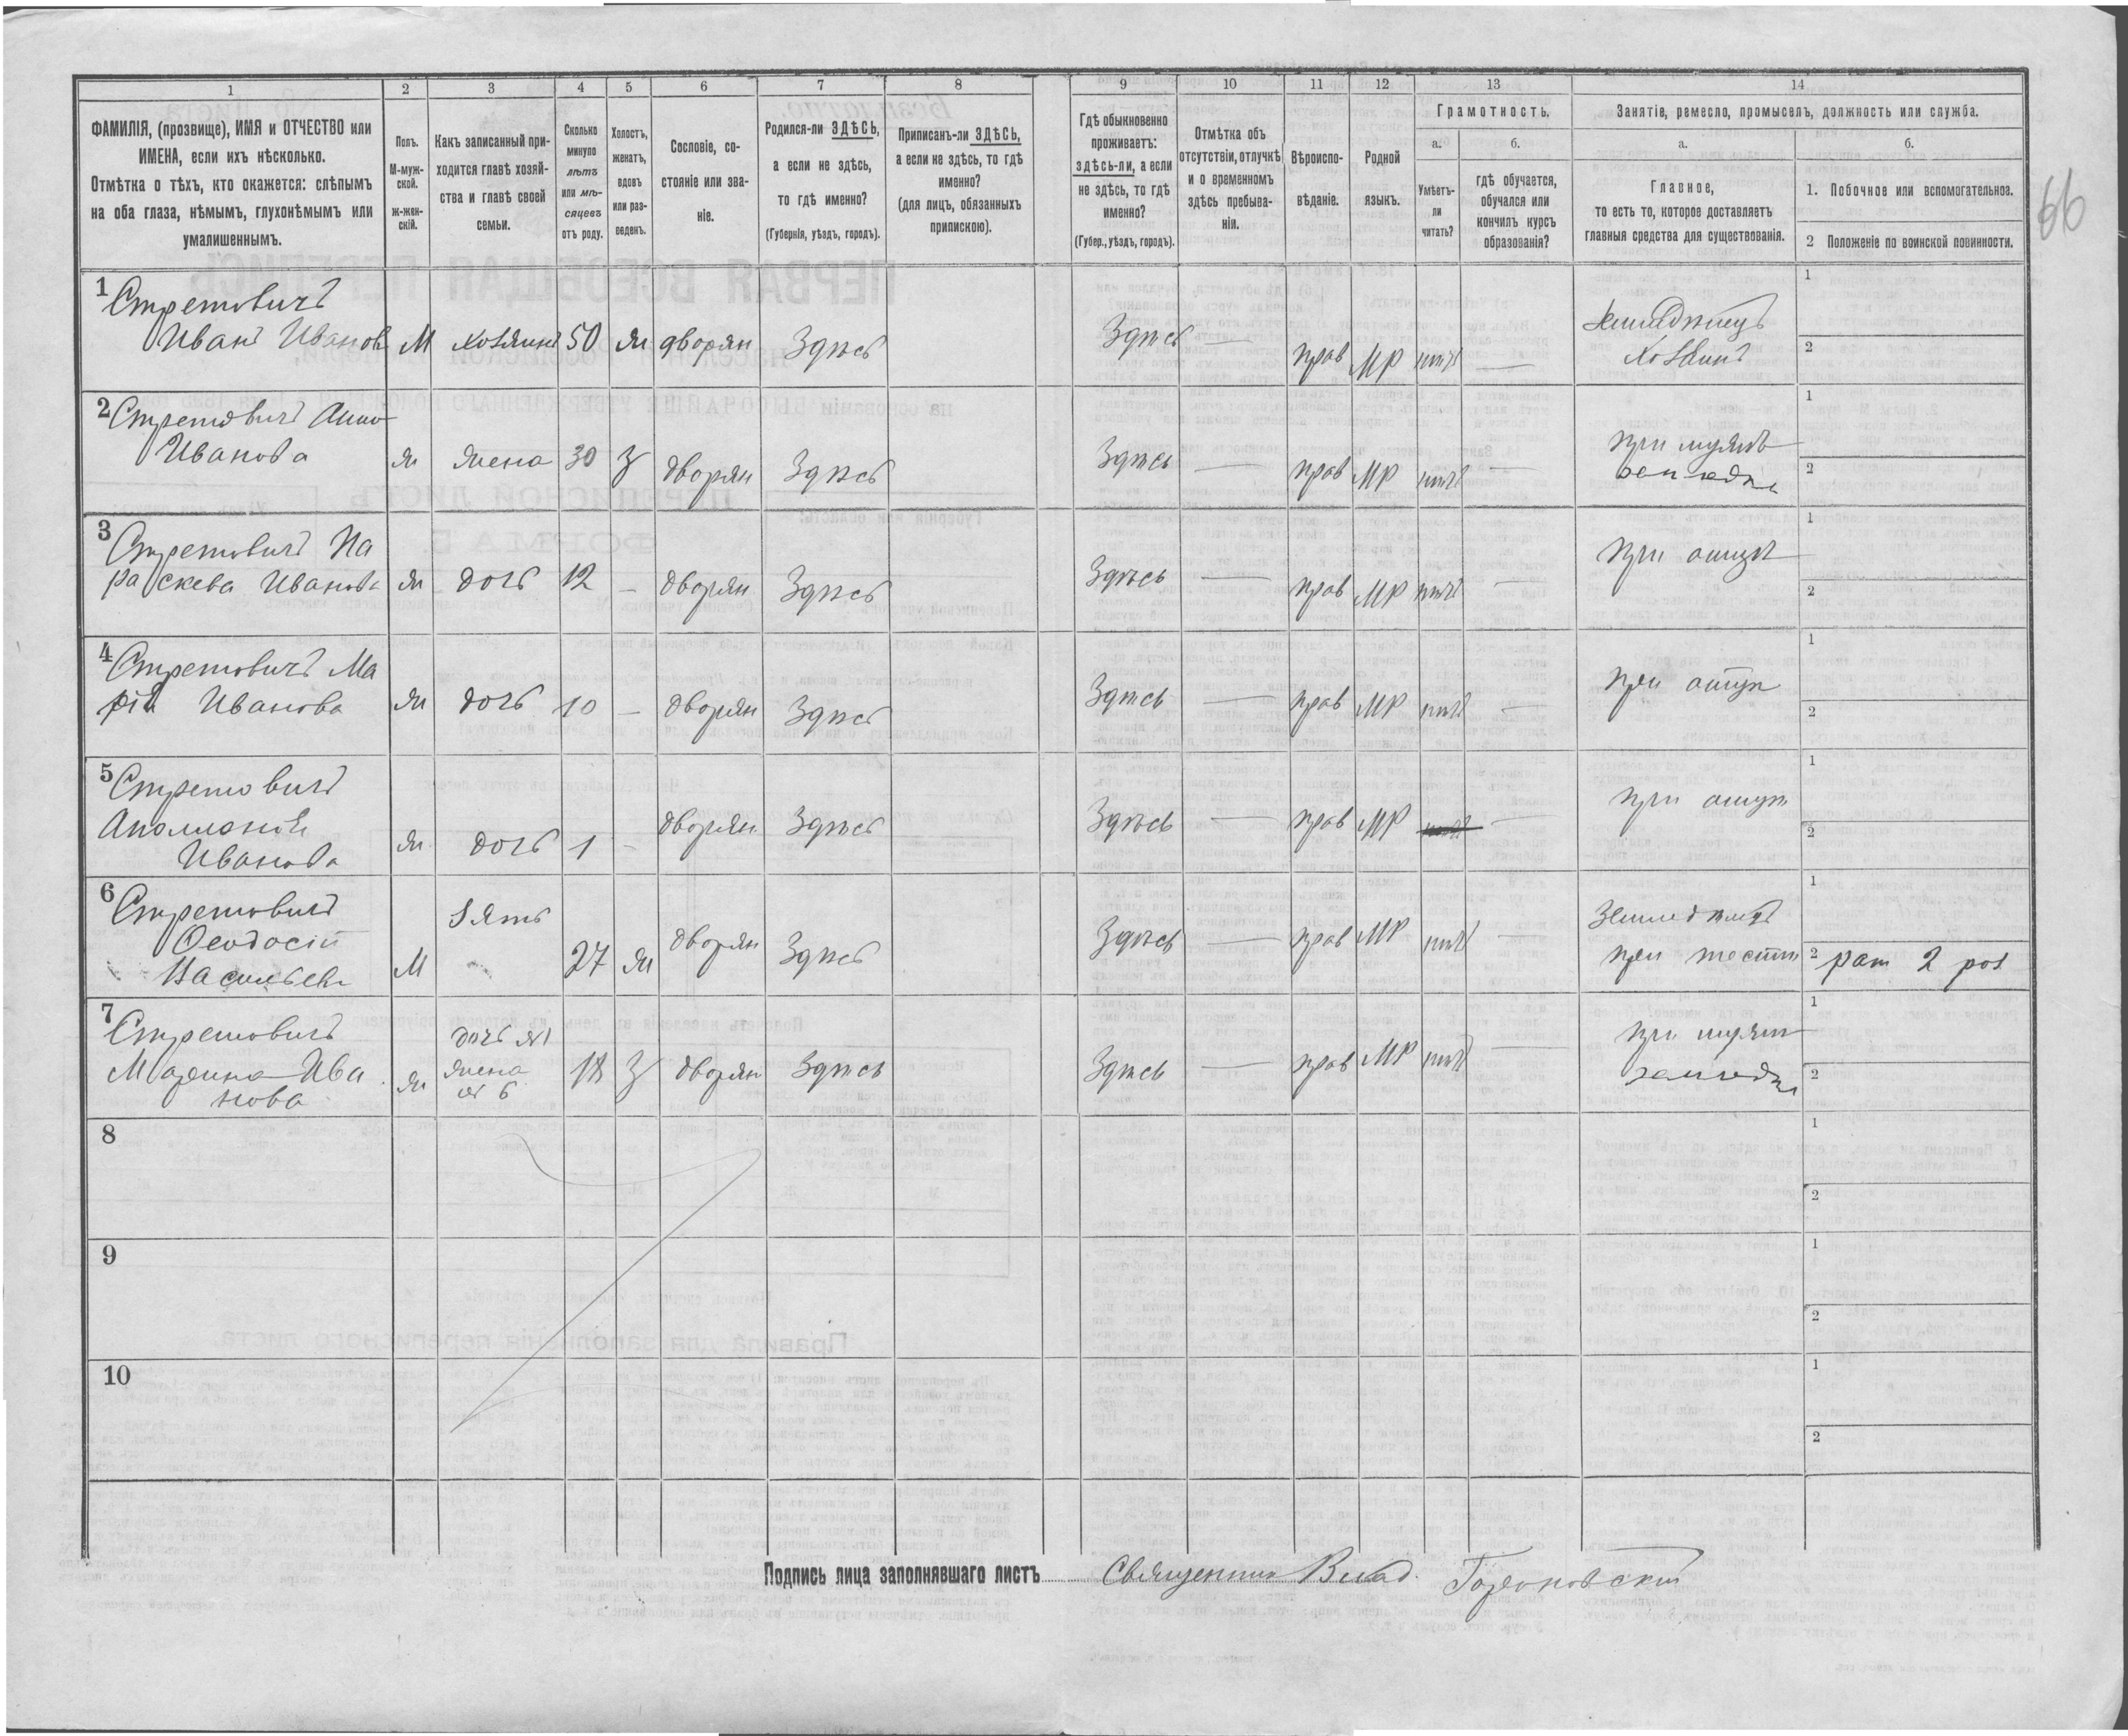 66
1 2 3 4 5 6 7 8 9 10 11 12 13 14
ФАМИЛІЯ, (прозвище), ИМЯ и ОТЧЕСТВО или
ИМЕНА, если ихъ нѣсколько.
Отмѣтка о тѣхъ, кто окажется: слѣпымъ
на оба глаза, нѣмымъ, глухонѣмымъ или
умалишеннымъ.
Полъ.
М-муж-
ской.
ж-жен-
скій.
Какъ записанный при-
ходится главѣ хозяй-
ства и главѣ своей
семьи.
Сколько
минуло
лѣтъ
или мѣ-
сяцевъ
отъ роду.
Холостъ,
женатъ,
вдовъ
или раз-
веденъ.
Сословіе, со-
стояніе или зва-
ніе.
Родился-ли ЗДѢСЬ,
а если не здѣсь,
то гдѣ именно?
(Губернія, уѣздъ, городъ).
Приписанъ-ли ЗДѢСЬ,
а если не здѣсь, то гдѣ
именно?
(для лицъ, обязанныхъ
припискою).
Гдѣ обыкновенно
проживаетъ:
здѣсь-ли, а если
не здѣсь, то гдѣ
именно?
(Губер., уѣздъ, городъ).
Отмѣтка объ
отсутствіи, отлучкѣ
и о временномъ
здѣсь пребыва-
ніи.
Вѣроиспо-
вѣданіе.
Родной
языкъ.
Грамотность.
а.
Умѣетъ-
ли
читать?
б.
гдѣ обучается,
обучался или
кончилъ курсъ
образованія?
Занятіе, ремесло, промыселъ, должность или служба.
а.
Главное,
то есть то, которое доставляетъ
главныя средства для существованія.
б.
1. Побочное или вспомогательное.
2 Положеніе по воинской повинности.
1 Стретовичъ
Иванъ Иванов М хозяинъ 50 ж дворян Здѣсь Здѣсь — прав МР нѣтъ — Земледѣлецъ
хозяинъ
1
2
2 Стретовичъ Анна
Иванова ж жена 30 З дворян Здѣсь Здѣсь — прав МР нѣтъ — при мужѣ
1
2
3 Стретовичъ Па
раскева Иванова ж дочь 12 — дворян Здѣсь Здѣсь — прав МР нѣтъ — при отцѣ
1
2
4 Стретовичъ Ма
рія Иванова ж дочь 10 — дворян Здѣсь Здѣсь — прав МР нѣтъ — при отцѣ
1
2
5 Стретовичъ
Иванова ж дочь 1 — дворян Здѣсь Здѣсь — прав МР нѣтъ — при отцѣ
1
2
6 Стретовичъ
Ѳеодосій
Васильев М зять 27 ж дворян Здѣсь Здѣсь — прав МР нѣтъ — земледѣлецъ
при тестѣ
1
2 рат 2 раз
7 Стретовичъ
Марина Ива
нова ж дочь №1
жена
№ 6 18 З дворян Здѣсь Здѣсь — прав МР нѣтъ — при мужѣ
1
2
8
1
2
9
1
2
10
1
2
Подпись лица заполнявшаго листъ Священник Влад.